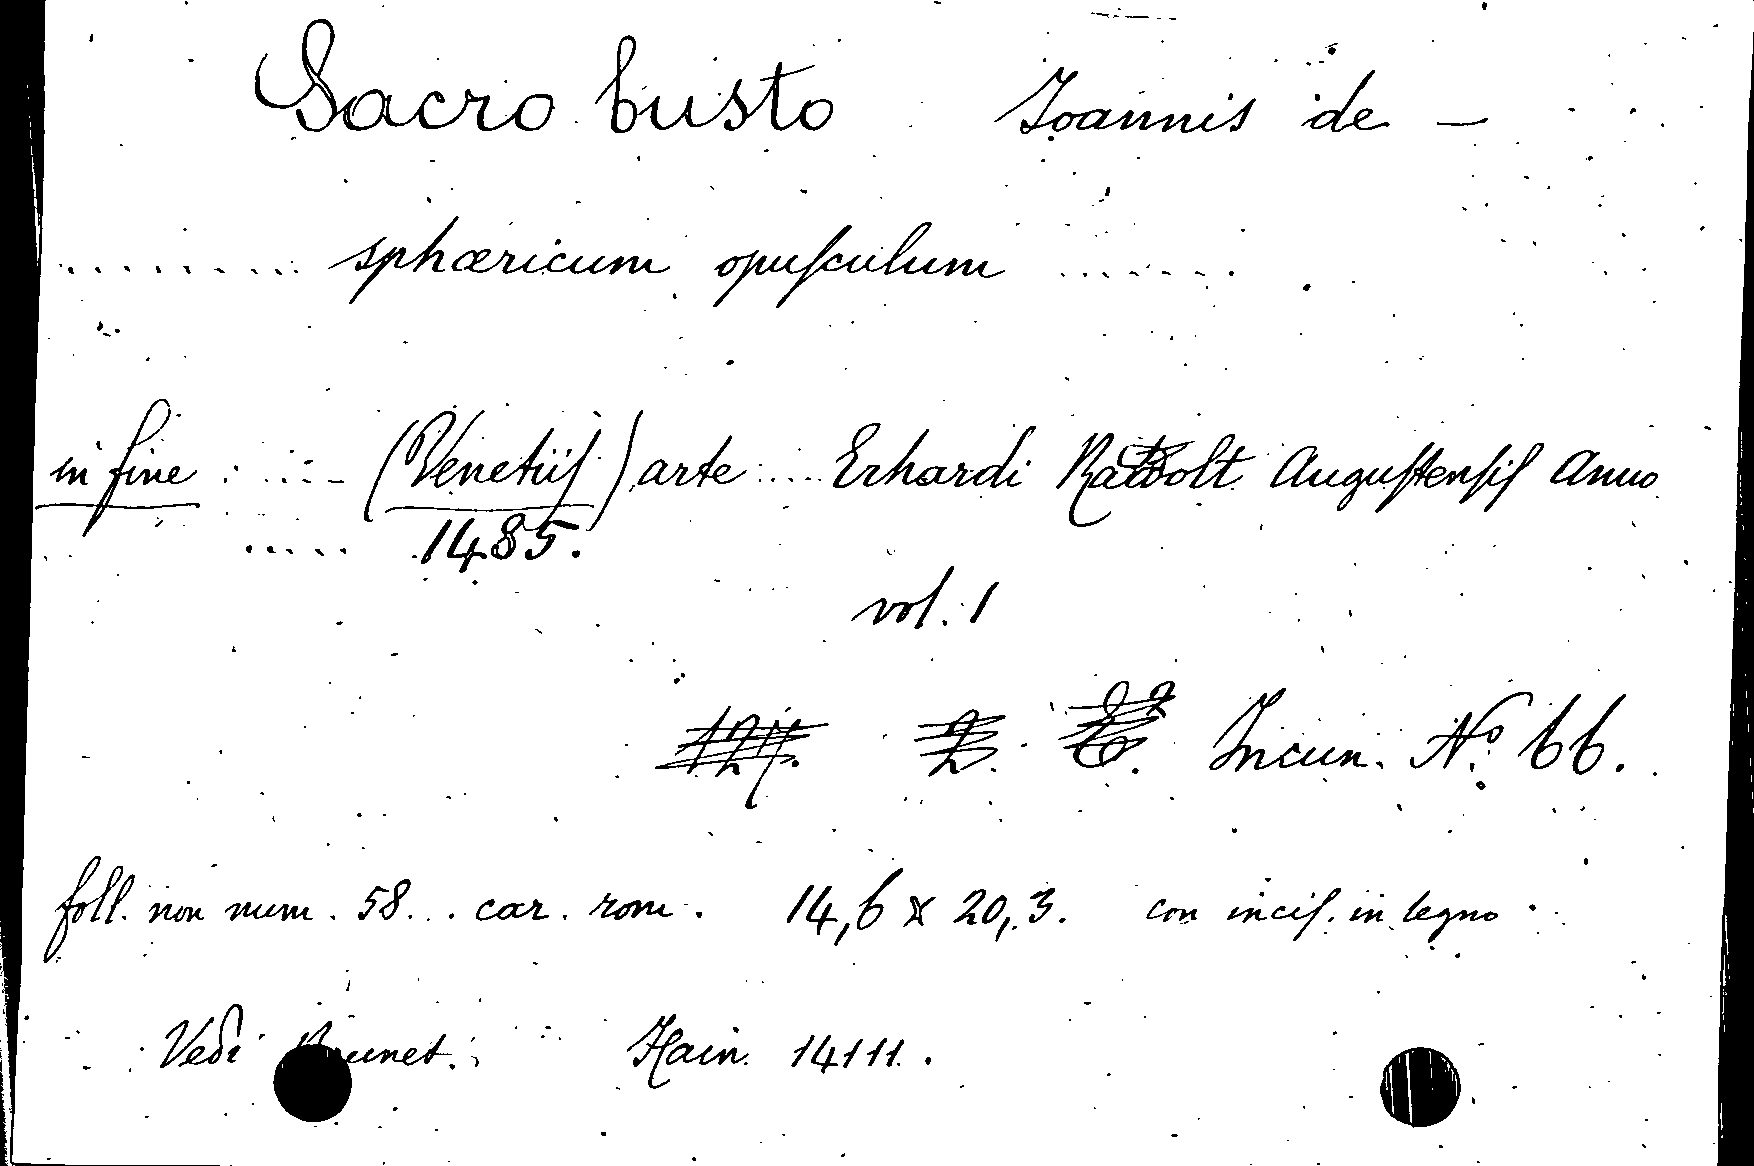 Sacro busto Joannis de —
......... sphæricum opuſculum .......
in fine : ..... (Venetiiſ) arte .... Erhardi Ratdolt Auguſtenſiſ Anno
..... 1485.
vol. 1
Incun. Nº 66.
foll. non num. 58... car. rom. 14,6 x 20,3. con inciſ. in legno.
Vedi Brunet. Hain 14111.